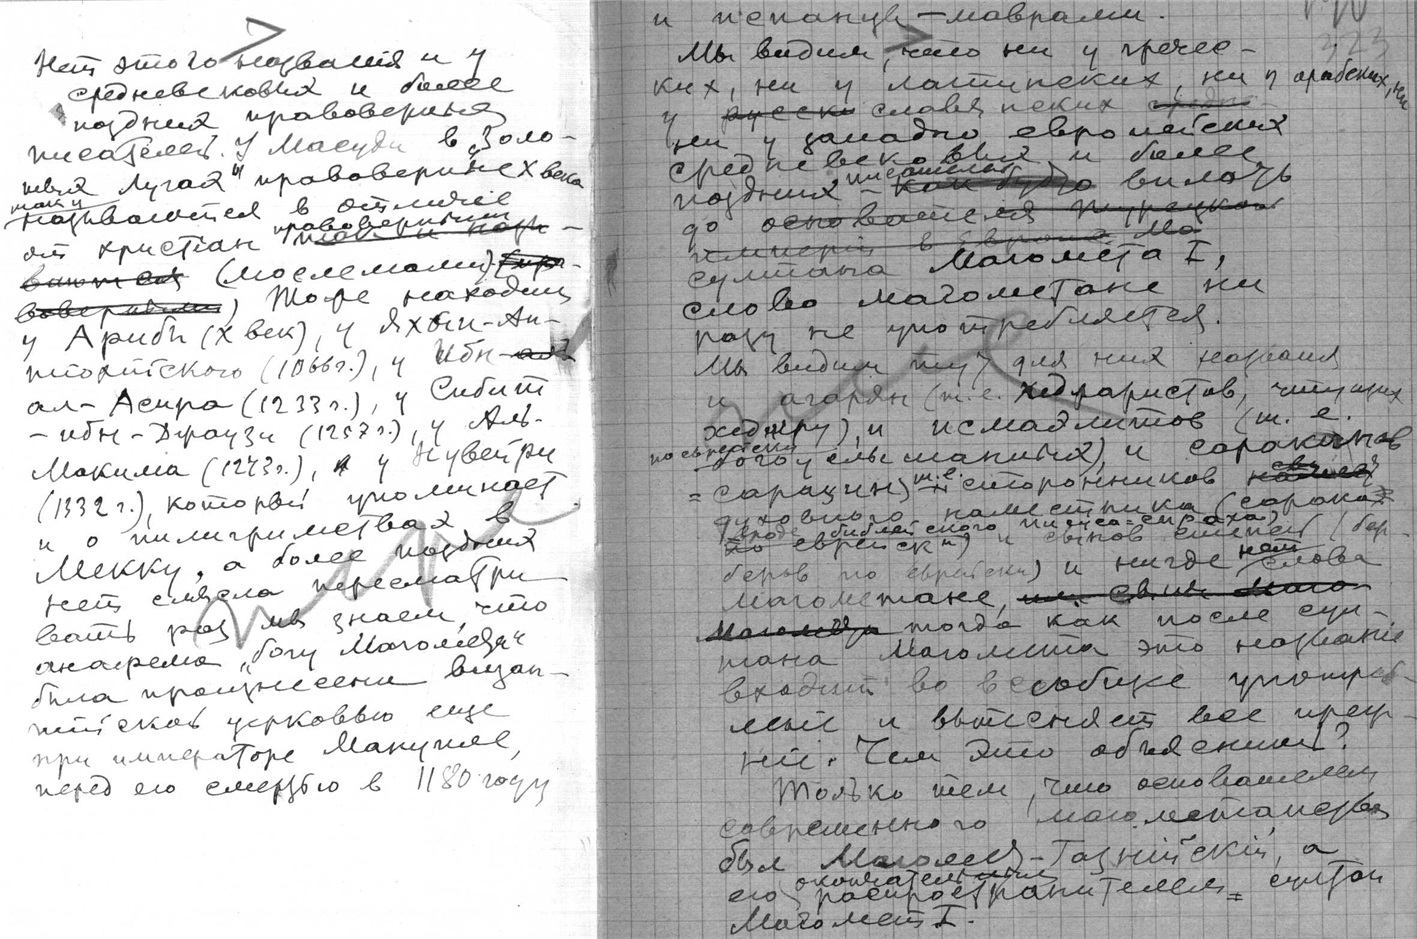 Нет этого названия и у
средневековых и более
поздних правоверных
писателей. У Масуди в „Золо-
тых Лугах" правоверные X века
так и
называются в отличие
от христиан правоверными
(мослемами)
Тоже находим
у Ариби (X век), у Яхъи-Ан-
тиохийского (1066 г.), у Ибн-
ал-Асира (1233 г.), у Сибит
-ибн-Джаузи (1257 г.), у Аль-
Макина (1273 г.), у Нувейри
(1332 г.), который упоминает
и о пилигримствах в
Мекку, а более поздних
нет смысла пересматри
вать раз мы знаем, что
анафема „богу Магомеда"
была произнесена визан-
тийской церковью еще
при императоре Мануиле,
перед его смертью в 1180 году
и испанцув-маврами.
323
Мы видим, что ни у гречес-
ких, ни у латинских, ни у арабских, ни
у русски славянских
ни у западно европейских
средневековых и более
поздних писателей вплоть
до основателя турецкой
империи в Европе
султана Магомета I,
слово магометане ни
разу не употребляется.
Мы видим тут для них названия
и агарян (т.е. хеджаристов, чтущих
хеджру), и исмаэлитов (т. е.
по еврейски
богоуслышанных), и саракинов
= сарацин) т.е. сторонников
духовного наместника (сарака
вроде библейского Иисуса-сираха)
по еврейски) и сынов степей (бер-
беров по еврейски) и нигде нет слова
магометане,
тогда как после сул-
тана Магомета это название
входит во всеобщее употреб-
и вытесняет все преж-
ние. Чем это объяснить?
Только тем, что основателем
современного магометанства
был Магомед-Газнийский, а
окончательным
его распространителем = султан
Магомет I.